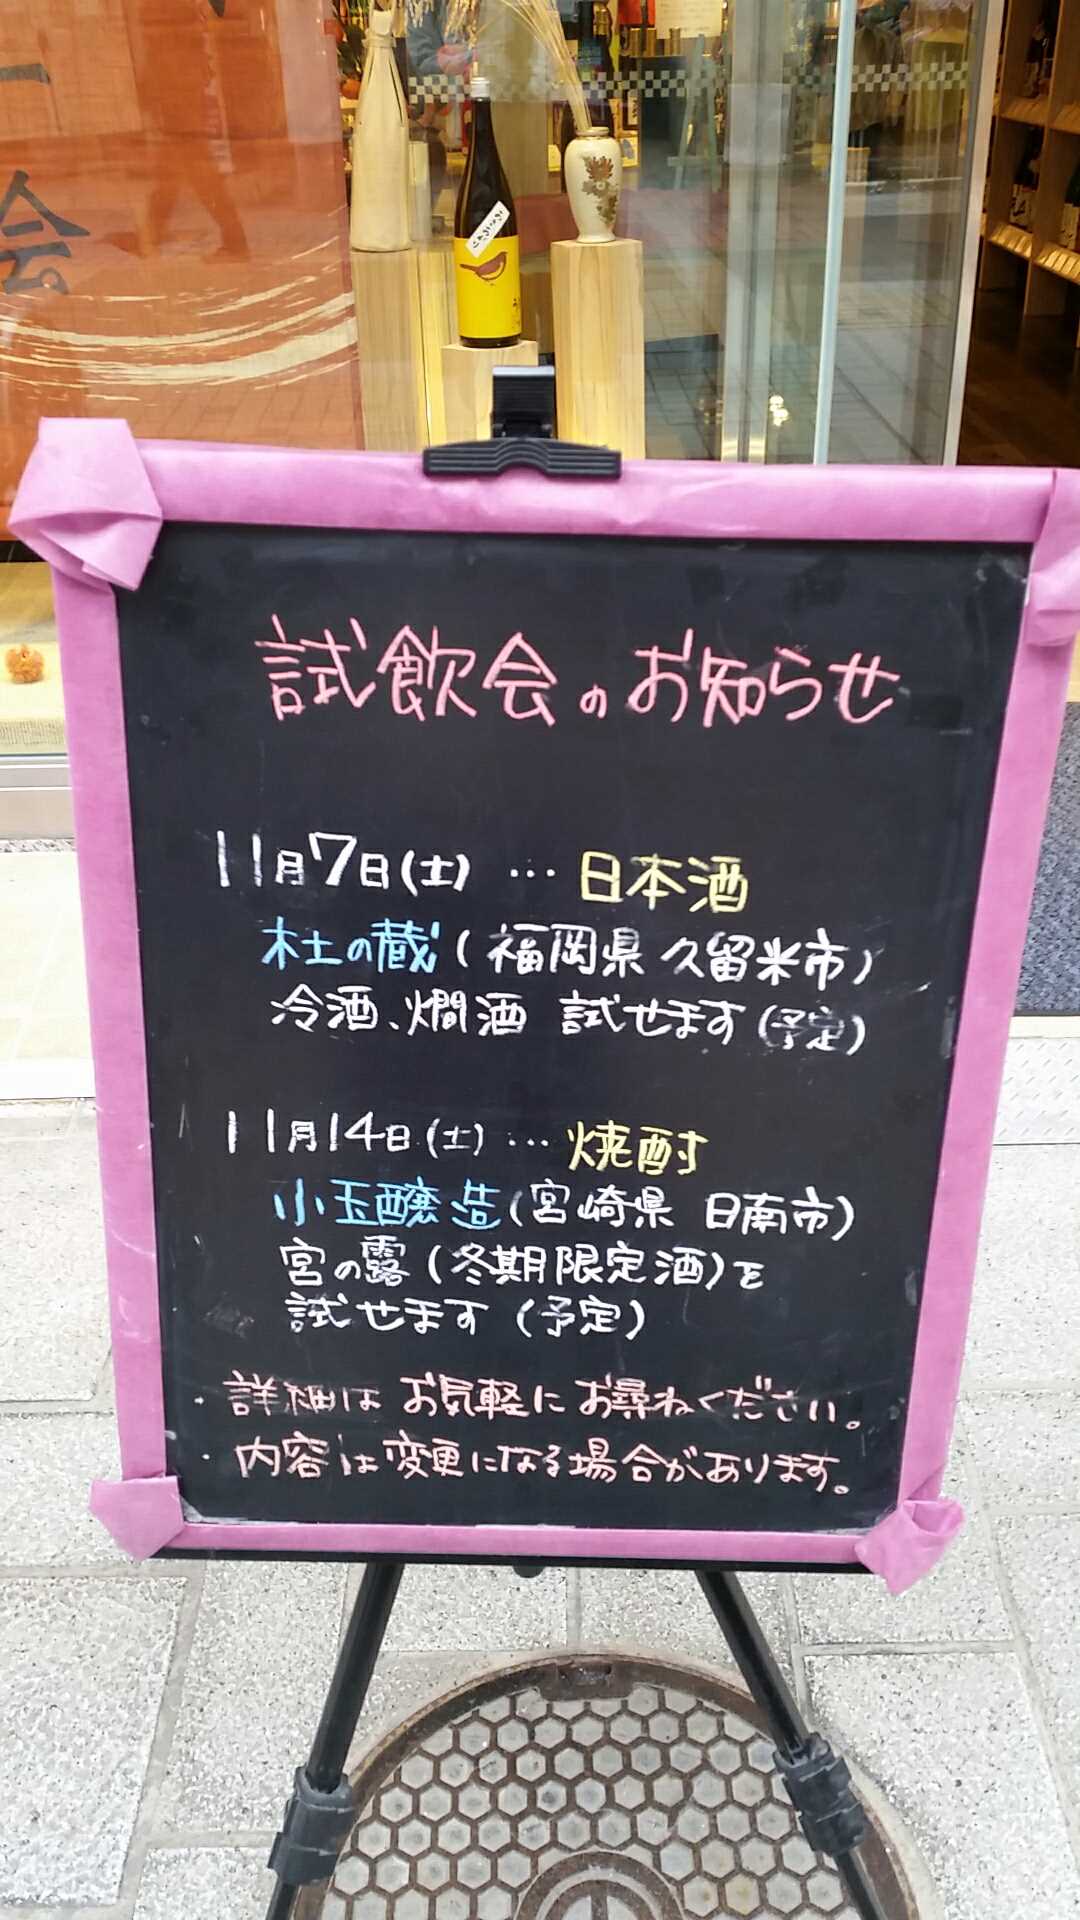 会。
ひやおろし
試飲会のお知らせ
11月7日(土) … 日本酒
杜の蔵(福岡県 久留米市)
冷酒、燗酒 試せます(予定)
11月14日(土) … 焼酎
小玉醸造(宮崎県 日南市)
宮の露(冬期限定酒)を
試せます(予定)
・詳細は お気軽に お尋ねください。
・内容は変更になる場合があります。